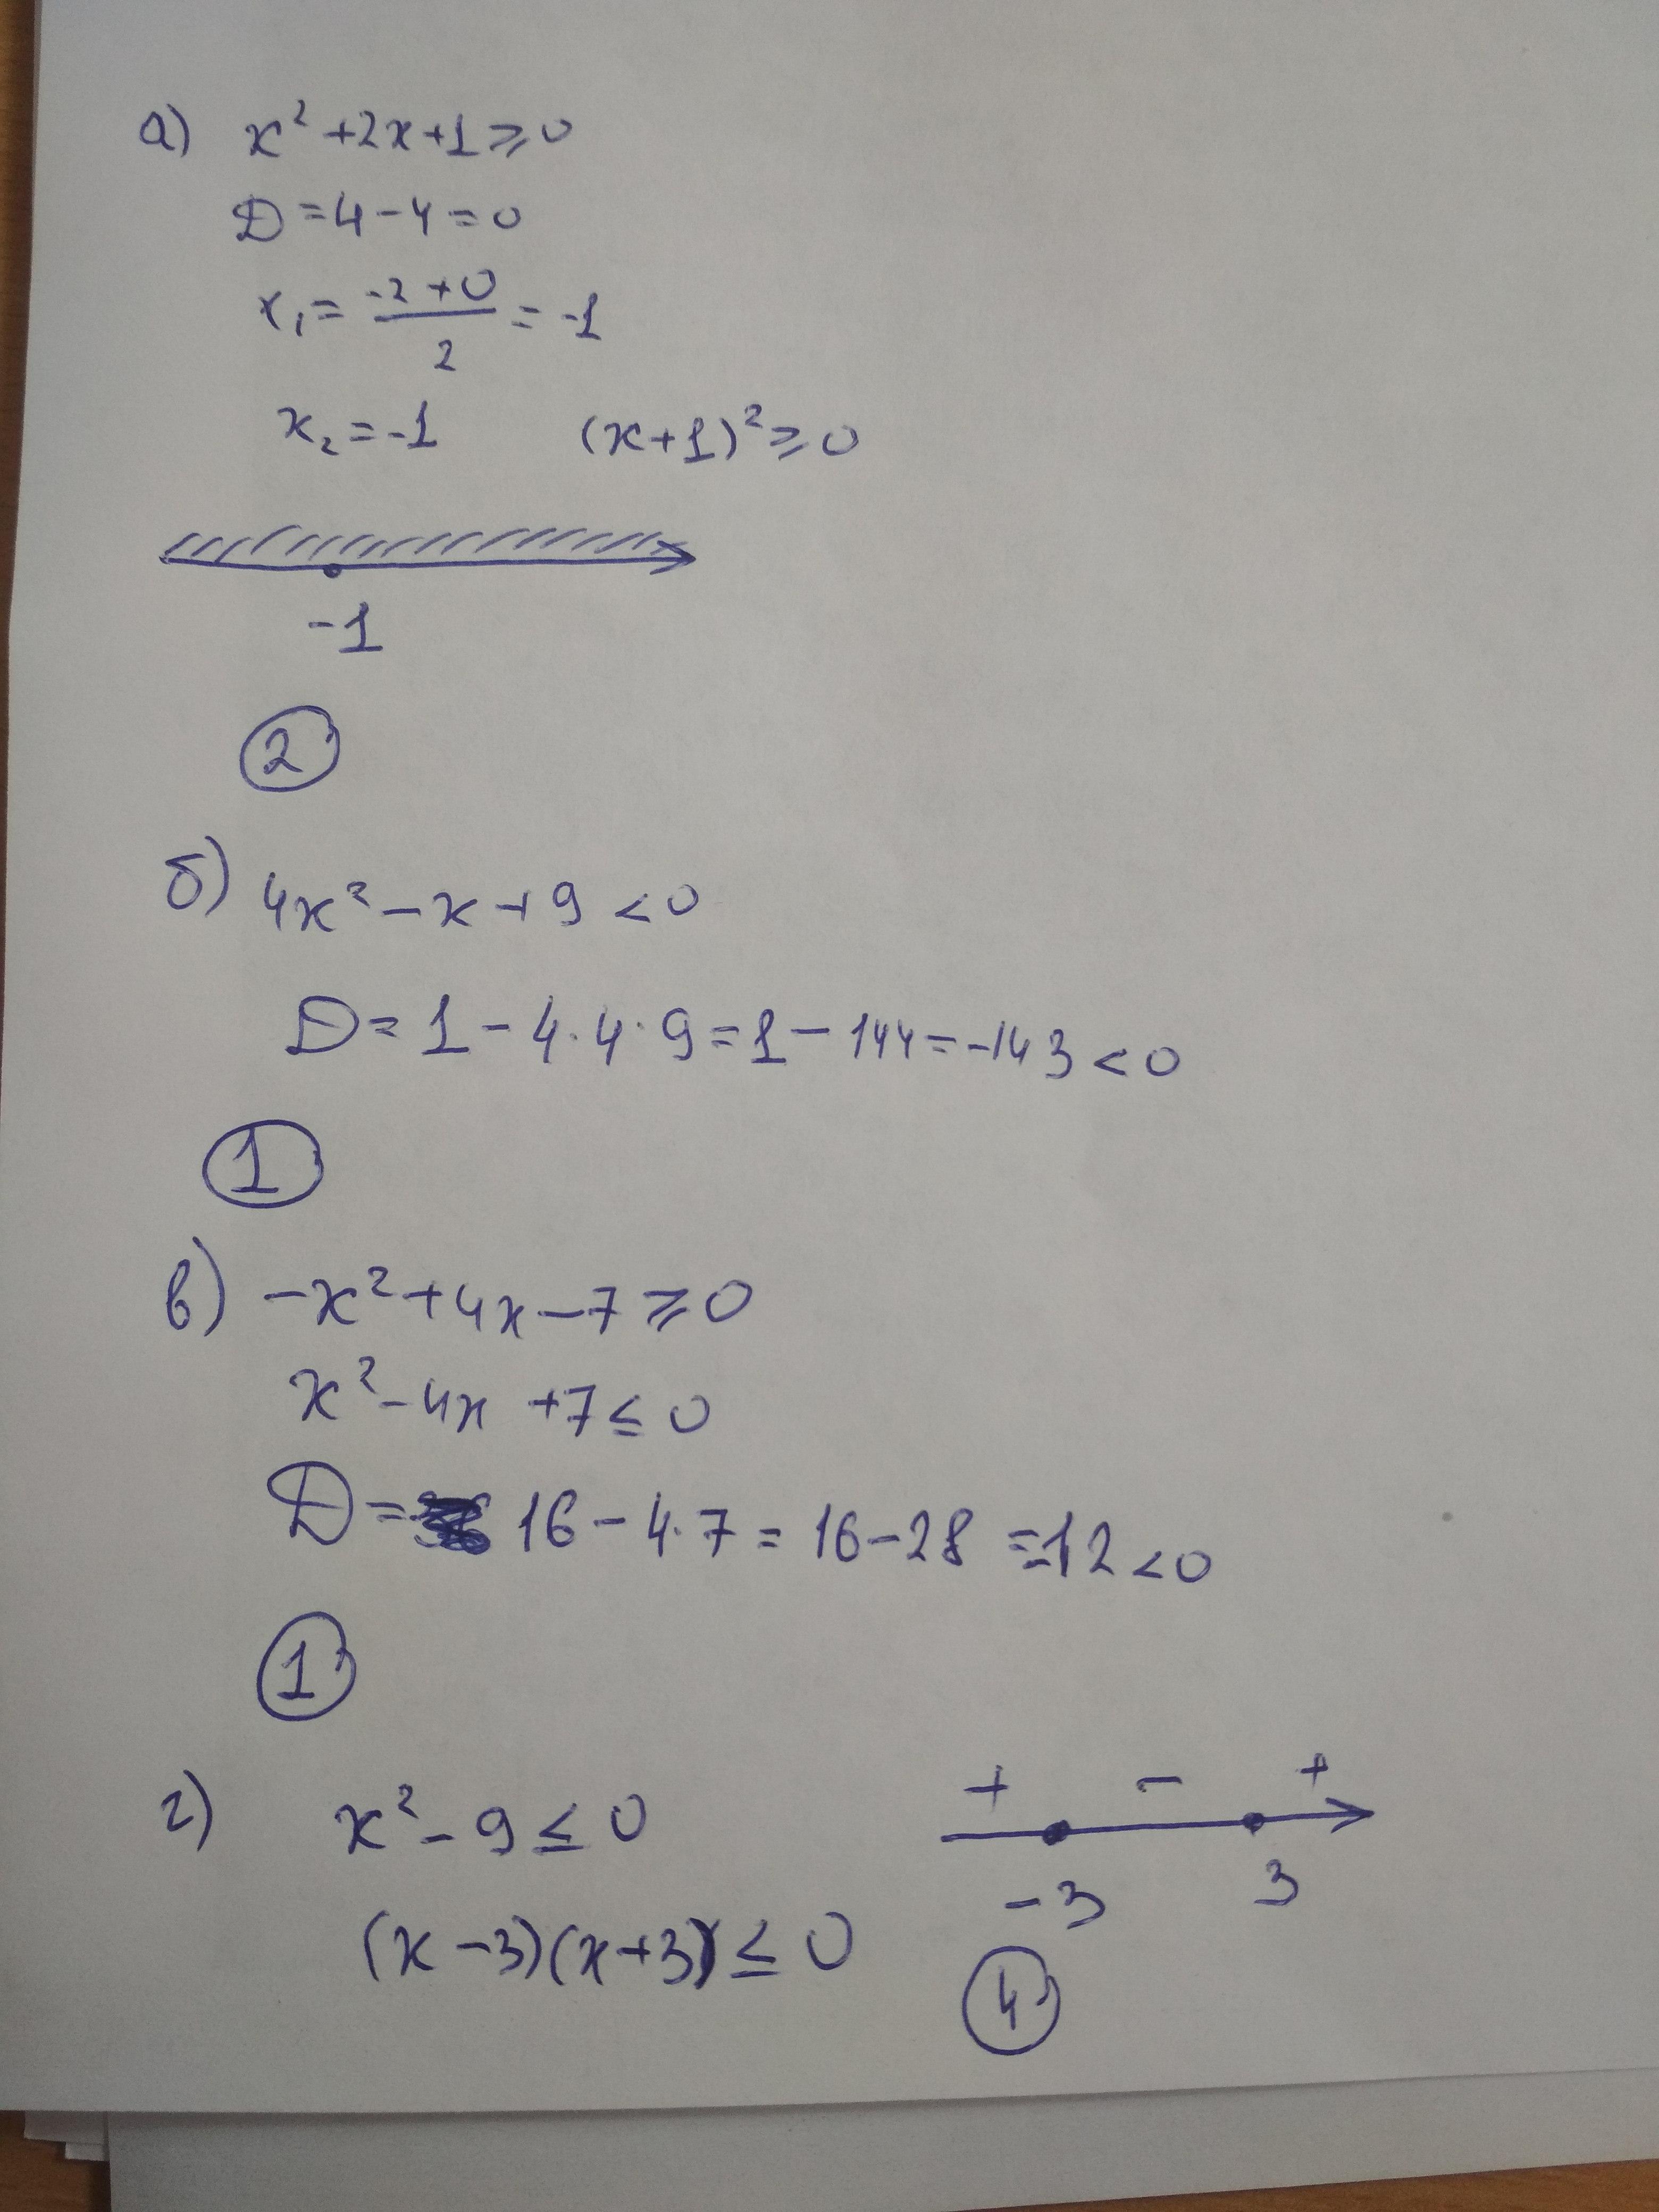 а) x² + 2x + 1 ⩾ 0
D = 4 - 4 = 0
x₁ = (-2 + 0)/2 = -1
x₂ = -1 (x + 1)² ⩾ 0
-1
2
б) 4x² - x + 9 < 0
D = 1 - 4 · 4 · 9 = 1 - 144 = -143 < 0
1
в) -x² + 4x - 7 ⩾ 0
x² - 4x + 7 ≤ 0
D = 16 - 4 · 7 = 16 - 28 = -12 < 0
1
г) x² - 9 ≤ 0
(x - 3)(x + 3) ≤ 0
+ - +
-3 3
4